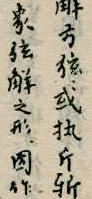 解方弦或执斤斩
象弦解之形因作